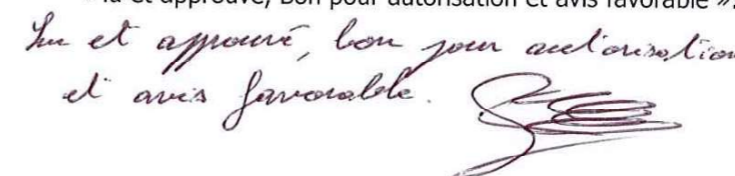 « lu et approuvé, Bon pour autorisation et avis favorable ».
Lu et approuvé, bon pour autorisation
et avis favorable.